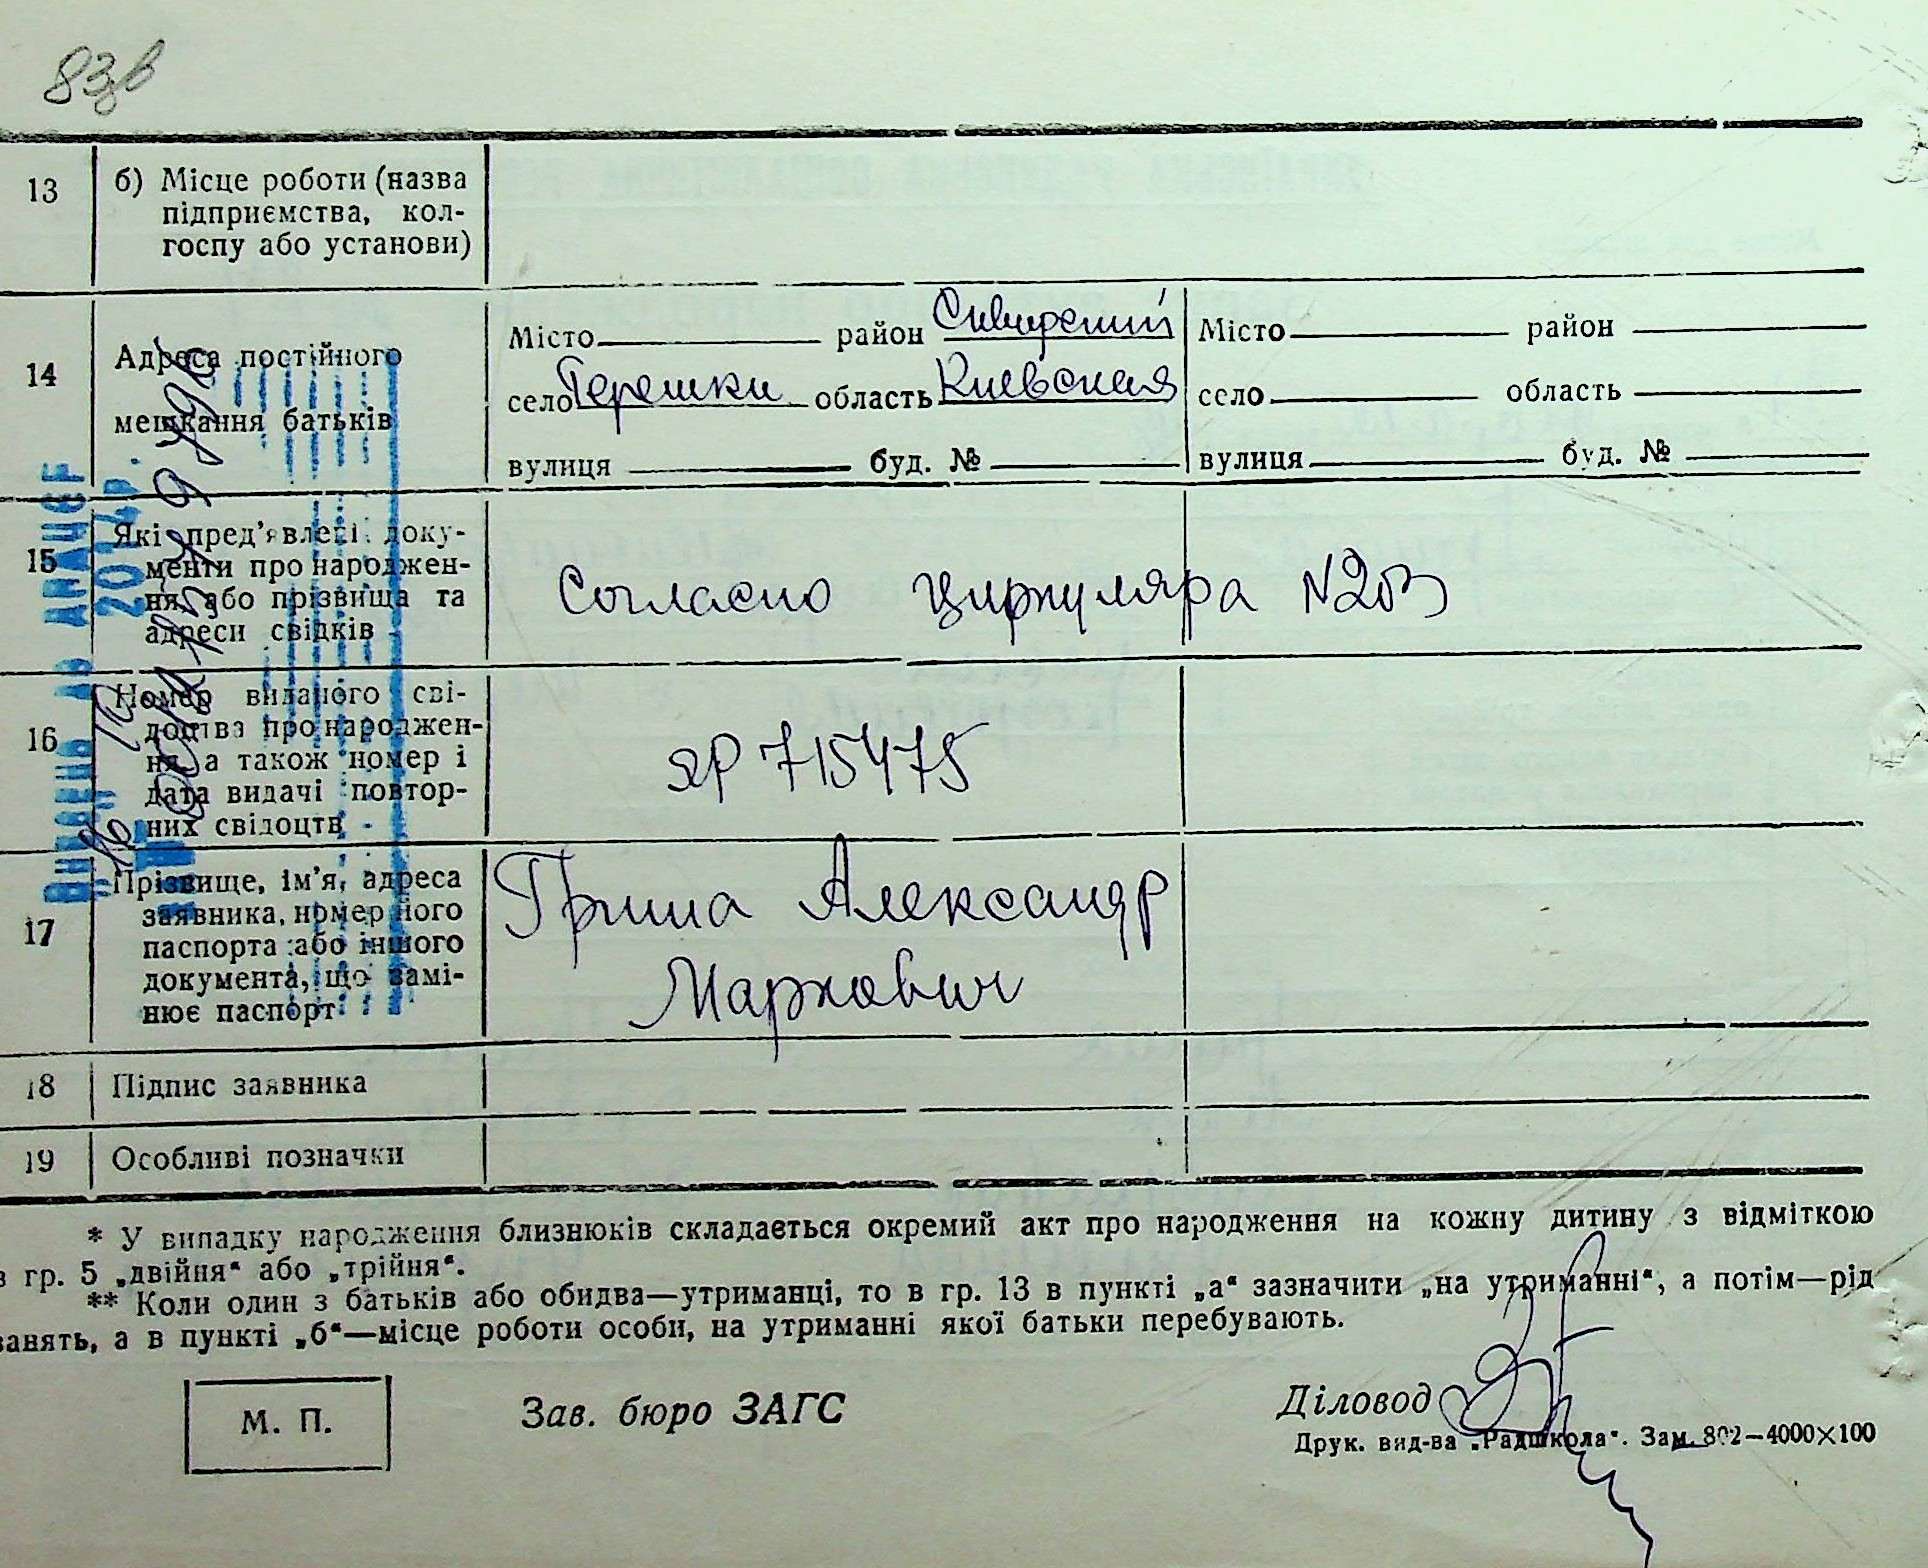 83зв
13 б) Місце роботи (назва
підприємства, кол-
госпу або установи)
14 Адреса постійного
мешкання батьків
Місто район Сквирский Місто район
село Терешки область Киевская село область
вулиця буд. № вулиця буд. №
15 Які пред'явлені доку-
менти про народжен-
ня або прізвища та
адреси свідків
Согласно циркуляра N203
16 Номер виданого сві-
доцтва про народжен-
ня, а також номер і
дата видачі повтор-
них свідоцтв
ЯР 715475
17 Прізвище, ім'я, адреса
заявника, номер його
паспорта або іншого
документа, що замі-
нює паспорт
Гриша Александр
Маркович
18 Підпис заявника
19 Особливі позначки
* У випадку народження близнюків складається окремий акт про народження на кожну дитину з відміткою
в гр. 5 „двійня“ або „трійня“.
** Коли один з батьків або обидва—утриманці, то в гр. 13 в пункті „а“ зазначити „на утриманні“, а потім—рід
занять, а в пункті „б“—місце роботи особи, на утриманні якої батьки перебувають.
М. П.
Зав. бюро ЗАГС
Діловод
Друк. вид-ва „Радшкола“. Зам. 802—4000×100